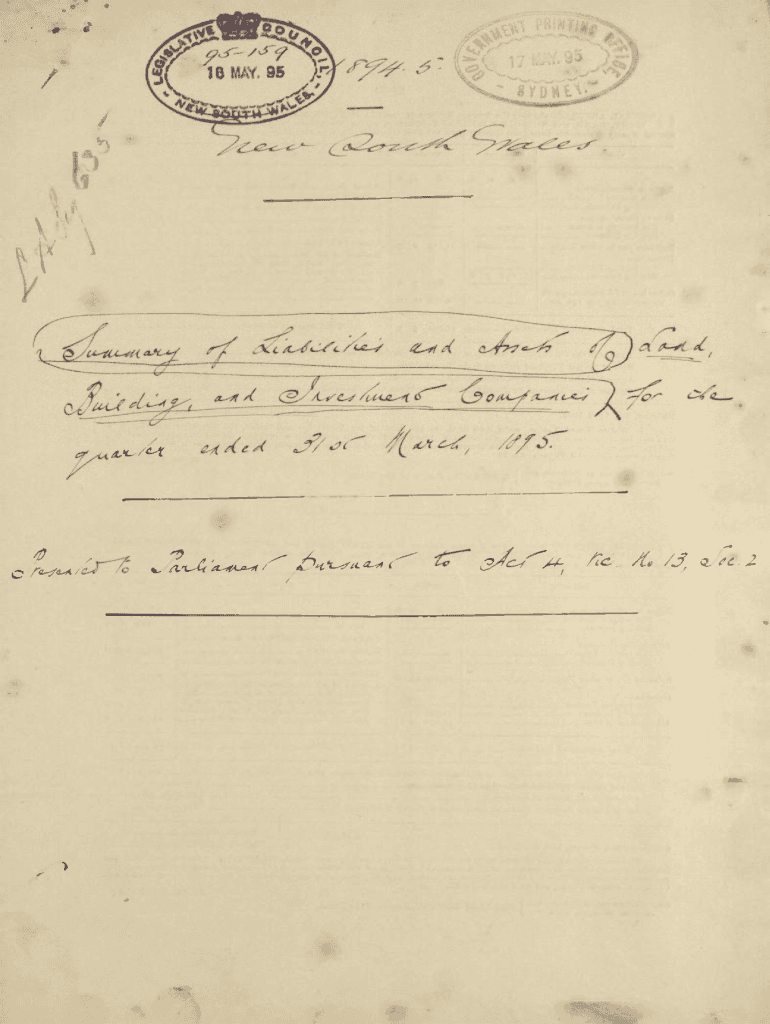 LEGISLATIVE COUNCIL,
95-159
16 MAY. 95
- NEW SOUTH WALES. -
1894.5.
GOVERNMENT PRINTING OFFICE
17 MAY. 95
- SYDNEY. -
New South Wales.
635
Summary of Liabilities and Assets of Land,
Building, and Investment Companies for the
quarter ended 31st March, 1895.
Presented to Parliament pursuant to Act 4, Vic. No. 13, Sec. 2